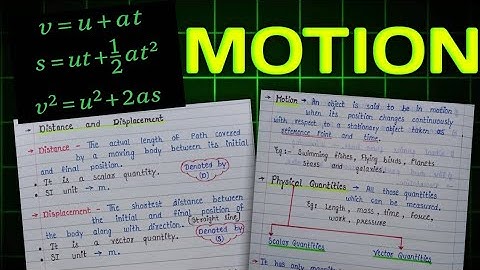 v = u + at
s = ut + 1/2 at²
v² = u² + 2as
MOTION
→ Distance and Displacement
→ Distance - The actual length of Path covered
by a moving body between its initial
and final position.
• It is a scalar quantity.
• SI unit → m.
Denoted by
(D)
→ Displacement - The shortest distance between
the initial and final position of
the body along with direction.
(Straight line)
• It is a vector quantity.
• SI unit → m.
Denoted by
(S)
→ Motion → An object is said to be in motion
when its position changes continuously
with respect to a stationary object taken as
reference Point and time.
Eg:- Swimming fishes, Flying birds, Planets
stars and galaxies.
→ Physical Quantities - All those quantities
which can be measured.
Eg: Length, mass, time, force,
work, pressure
Scalar Quantities
Vector Quantities
→ It has only